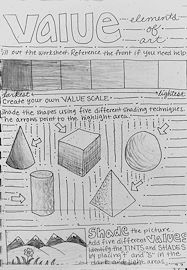 value
elements
of
art
fill out the worksheet. Reference the front if you need help
darkest
lightest
Create your own VALUE SCALE
Shade the shapes using five different shading techniques.
The arrows point to the highlight area.
Shade the picture.
Add five different values
Identify the TINTS and SHADES
by placing T and "S" in the
dark and light areas.